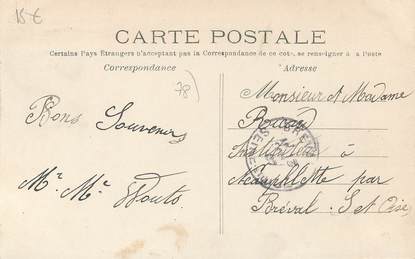 15 €
CARTE POSTALE
Certains Pays Étrangers n'acceptant pas la Correspondance de ce côté, se renseigner à la Poste
Correspondance
Adresse
78)
Bons Souvenirs
Mr. Me.
Monsieur et Madame
Instituteur à
Neauphlette par
Bréval. S. et Oise